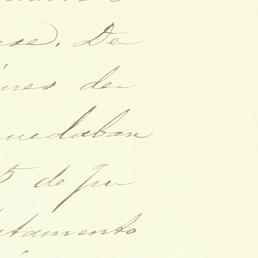 se. De-
ines de-
uedaban
5 de Ju-
tamento